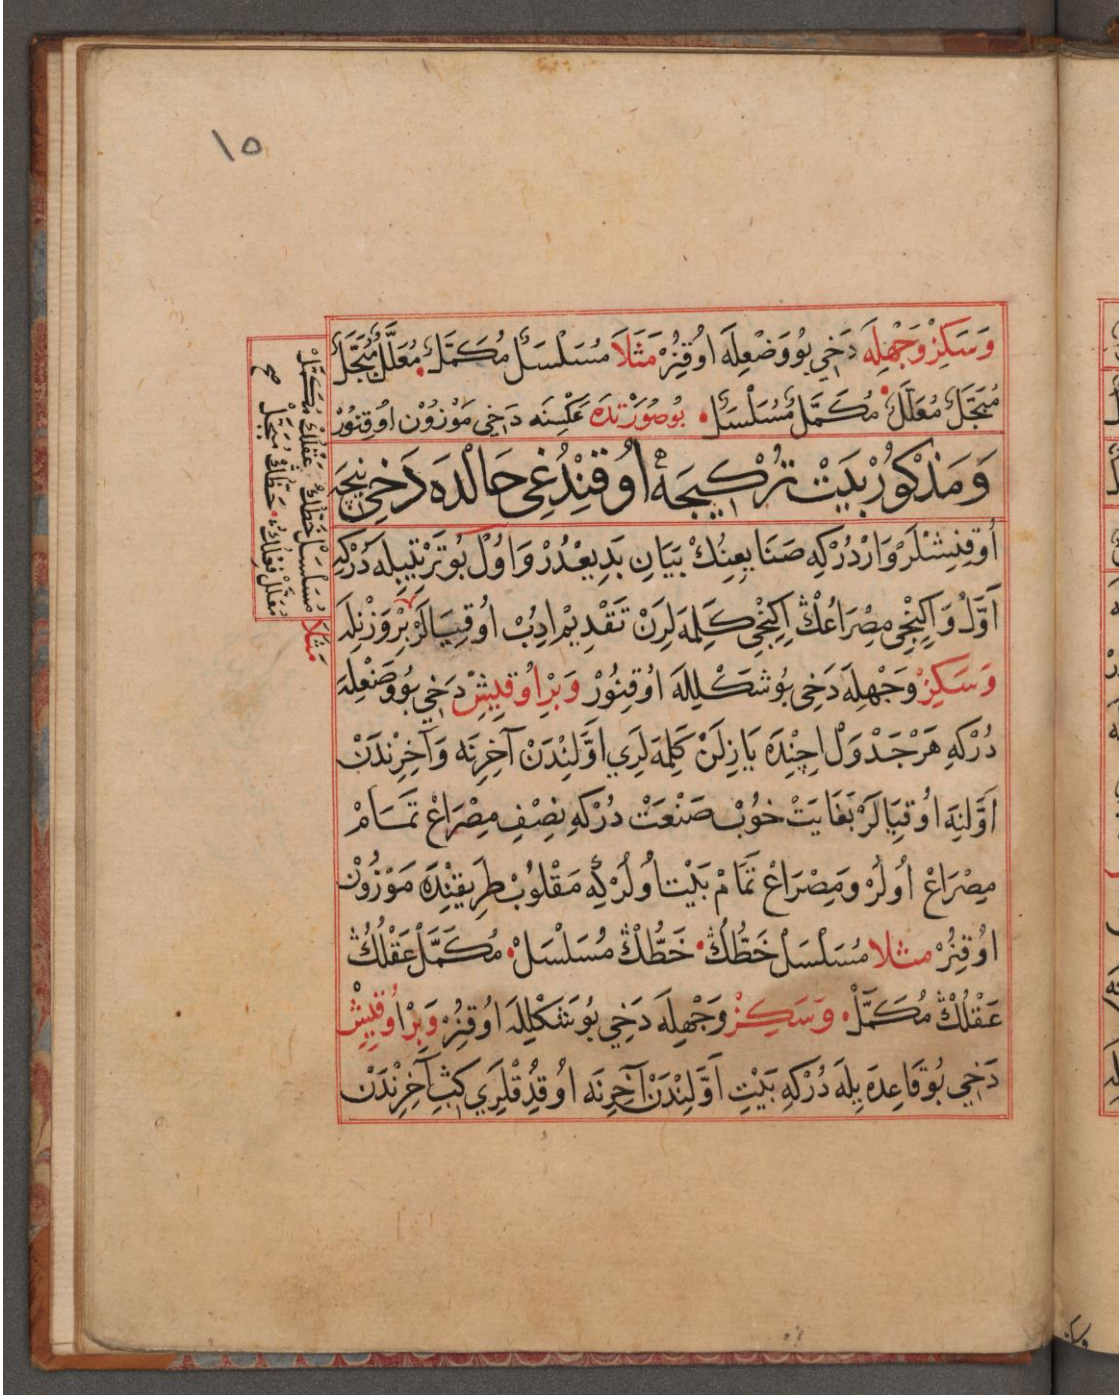 ١٥
وَسَكِزْ وَجْهِلَه دَخِي بُو وَضْعِلَه اوُقِنُرْ مَثَلَا مُسَلْسَلْ مُكَمَّلْ مُعَلَّلْ مُبَجَّلْ
مُبَجَّلْ مُعَلَّلْ مُكَمَّلْ مُسَلْسَلْ بُوصُورَتْدَه عَكْسِنَه دَخِي مَوْزُوْنْ اوُقِنُورْ
وَمَذْكُورْ بَيَتْ تُرْكِيجَه اوُقِنْدُغِي حَالْدَه دَخِي نِيجَه
اُوقِنِشْلَرْ وَارْدُرْكِه صَنَايِعِنِكْ بَيَانِ بَدِيعْدُرْ وَاوُلْ بُو تَرْتِيبِلَه دُرْكِه
اَوَّلْ وَاِكِنْجِي مِصْرَاعُكْ اِكِنْجِي كَلِمَه لَرِنْ تَقْدِيمْ اِدِبْ اوُقِيَالَرْ بِرْ وَزْنِلَه
وَسَكِزْ وَجْهِلَه دَخِي بُو شَكْلِلَه اوُقِنُورْ وَبِرْ اوُقِيِشْ دَخِي بُو وَضْعِلَه
دُرْكِه هَرْ جَدْوَلْ اِچِنْدَه يَازِلَنْ كَلِمَه لَرِي اَوَّلِنْدَنْ آخِرِنَه وَآخِرِنْدَنْ
اَوَّلِنَه اوُقِيَالَرْ بَغَايَتْ خُوبْ صَنْعَتْ دُرْكِه نِصْفِ مِصْرَاعْ تَمَامْ
مِصْرَاعْ اُولُرْ وَمِصْرَاعْ تَمَامْ بَيْت اُولُرْكِه مَقْلُوبْ طَرِيقِنْدَه مَوْزُوْنْ
اوُقِنُرْ مثلا مُسَلْسَلْ خَطُّكْ خَطُّكْ مُسَلْسَلْ مُكَمَّلْ عَقْلُكْ
عَقْلُكْ مُكَمَّلْ وَسَكِزْ وَجْهِلَه دَخِي بُو شَكْلِلَه اوُقِنُرْ وَبِرْ اوُقِيِشْ
دَخِي بُو قَاعِدَه يِلَه دُرْكِه بَيْتِ اَوَّلِنْدَنْ آخِرِنَه اوُقِدُقْلَرِي كِبِي آخِرِنْدَنْ
مَثَلَا مُسَلْسَلْ خَطُّكْ عَقْلُكْ مُكَمَّلْ
مُعَلَّلْ فِعْلُكْ حَظُّكْ مُبَجَّلْ صح